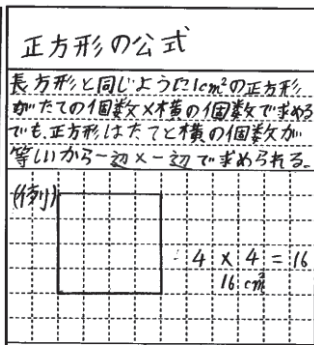 正方形の公式
長方形と同じように1cm²の正方形
がたての個数×横の個数で求める
でも、正方形はたてと横の個数が
等しいから一辺×一辺で求められる。
(例)
4 × 4 = 16
16 cm²